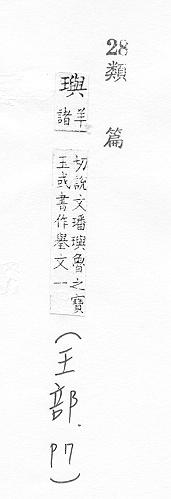 28
類篇
璵
羊諸
切說文璠璵魯之寶
玉或書作璺文一
(王部.P7)